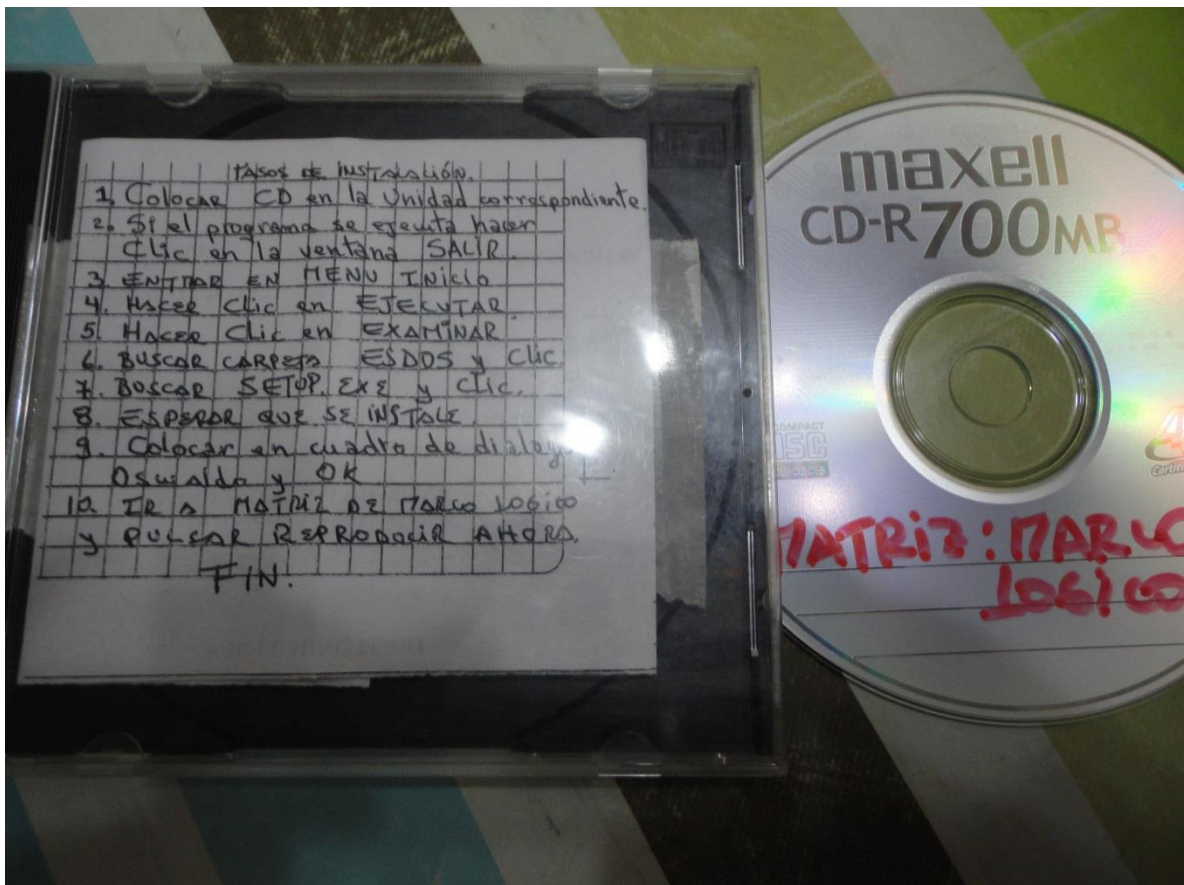 PASOS DE INSTALACIÓN.
1. Colocar CD en la Unidad correspondiente.
2. Si el programa se ejecuta hacer
Clic en la ventana SALIR.
3. ENTRAR EN MENU INICIO
4. HACER Clic en EJECUTAR.
5. HACER Clic en EXAMINAR
6. BUSCAR CARPETA ESDOS y Clic
7. BUSCAR SETUP.EXE y Clic.
8. ESPERAR QUE SE INSTALE.
9. Colocar en cuadro de dialogo
Oswaldo y OK
10. IR A MATRIZ DE MARCO LOGICO
y PULSAR REPRODUCIR AHORA.
FIN.
maxell
CD-R 700MB
COMPACT
DISC
MATRIZ: MARCO
LOGICO